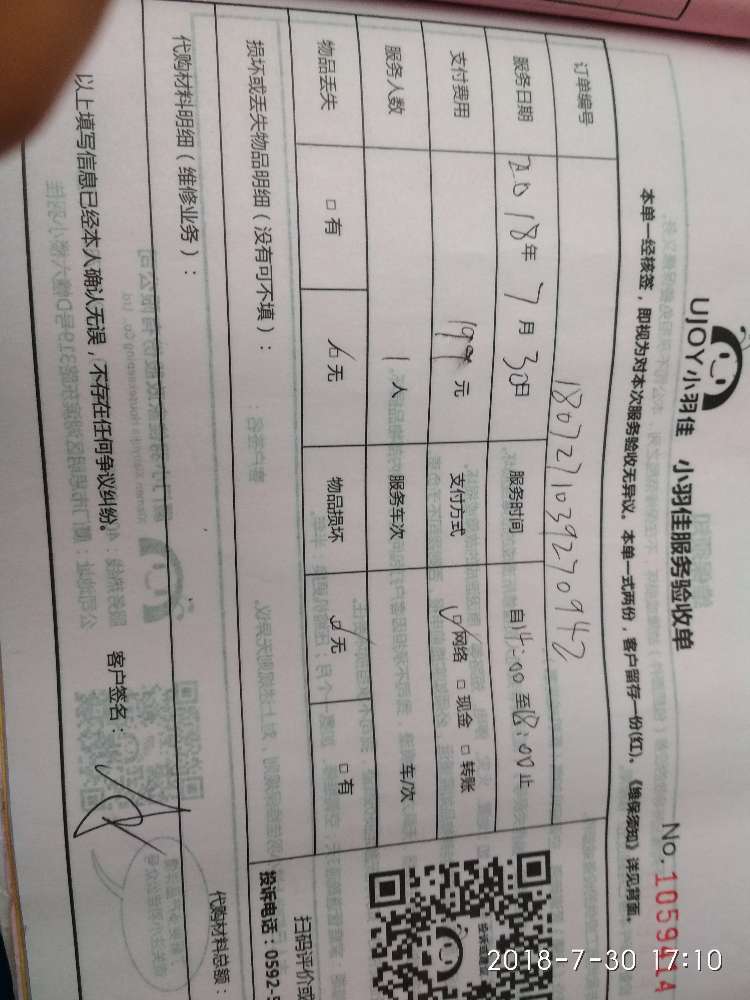 UJOY小羽佳 小羽佳服务验收单 No. 1059414
本单一经核签，即视为对本次服务验收无异议。本单一式两份，客户留存一份(红)。《维保须知》详见背面。
订单编号 1807271039270942
服务日期 2018年7月30日 服务时间 自14:00至18:00止
支付费用 199元 支付方式 网络 现金 转账
服务人数 1人 服务车次 车/次
物品丢失 有 无 物品损坏 无 有
损坏或丢失物品明细（没有可不填）：
扫码评价或
投诉电话：0592-5
代购材料明细（维修业务）： 代购材料总额：
以上填写信息已经本人确认无误，不存在任何争议纠纷。 客户签名：
2018-7-30 17:10